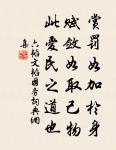 賞罰如加於身
賦斂如取己物
此愛民之道也
六韜文韜國務詞典網
集